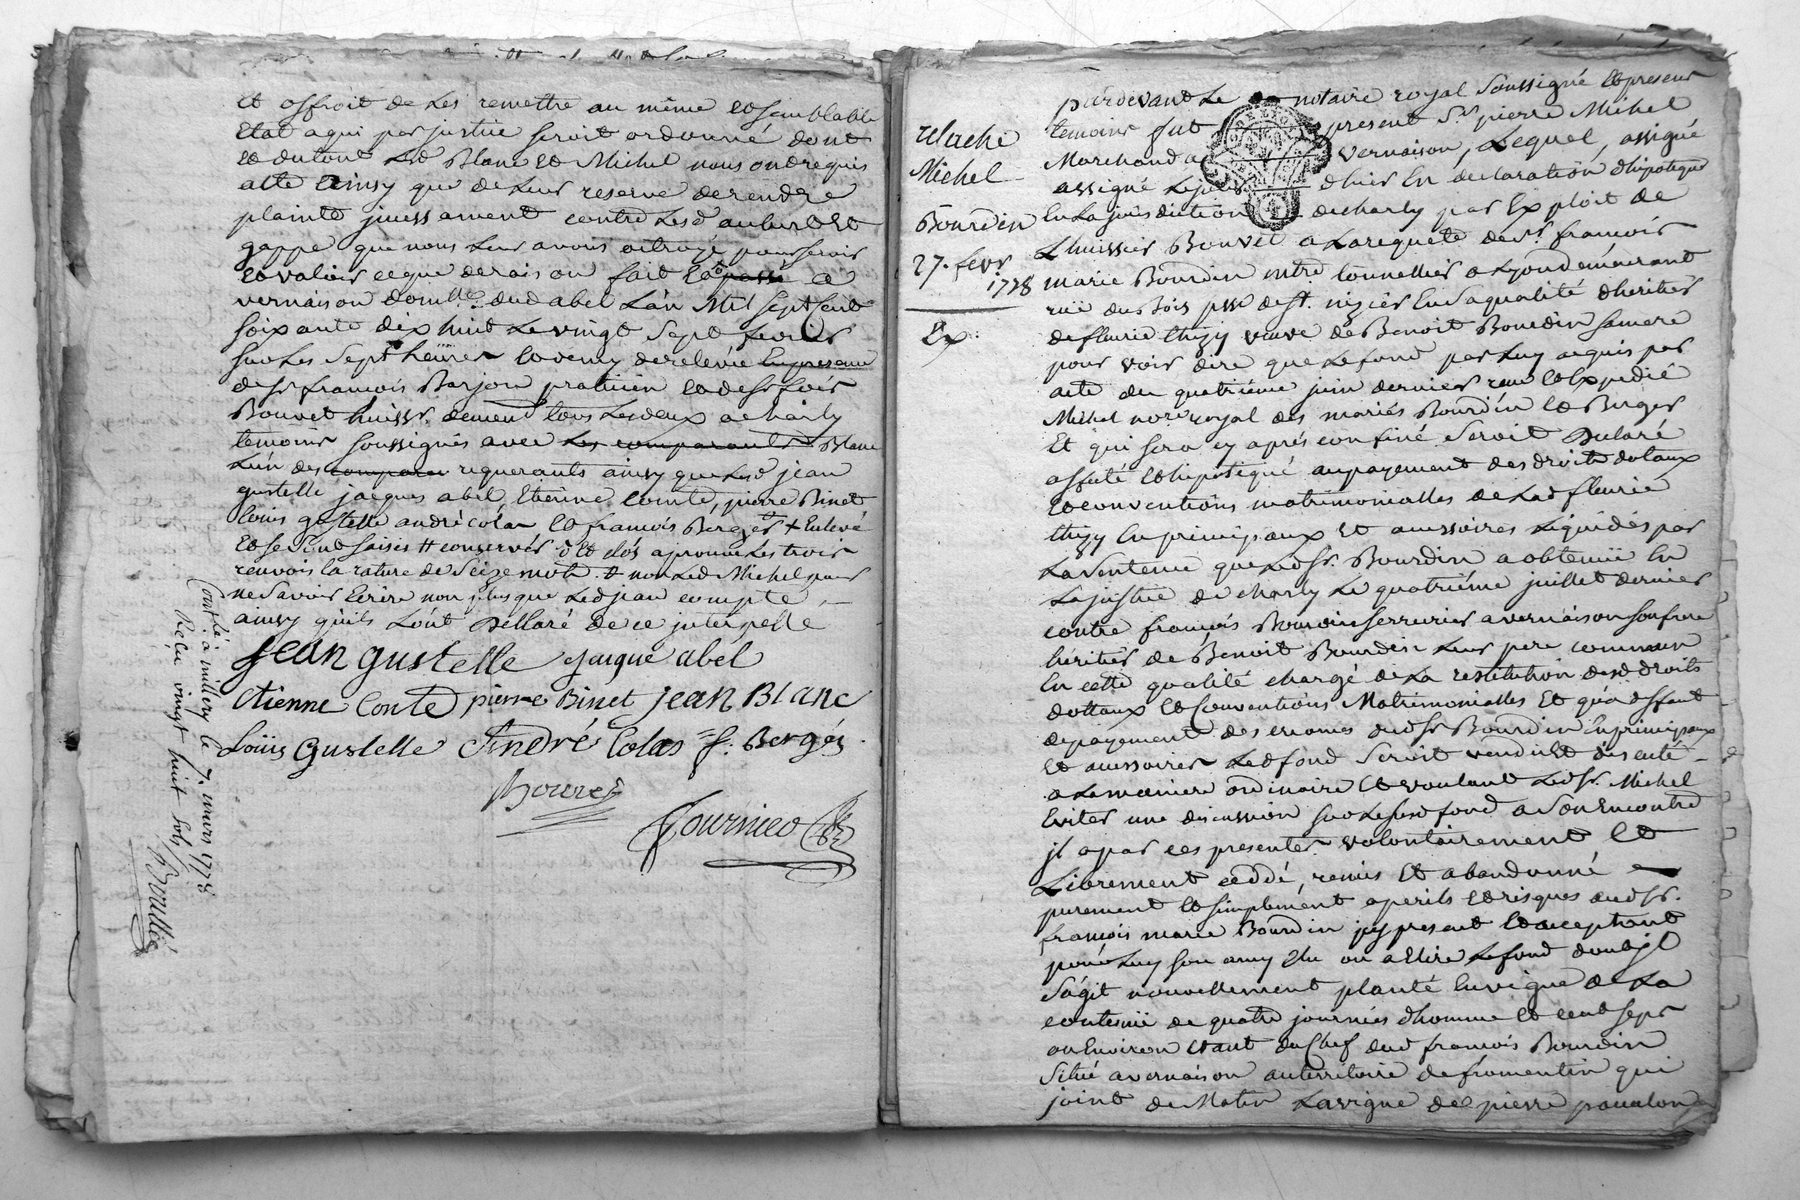 Et offroit de les remettre au même et semblable
Etat a qui par justice seroit ordonné dont
et du tout led Blanc et Michel nous ont requis
acte ainsy que de leur reserve de rendre
plainte contre lesd aubert et
gappe que nous leur avons octroyé pour servir
et valoir ce que de raison fait et passé a
vernaison domlle dud abel L'an Mil sept Cent
soixante dix huit Le vingt sept fevrier
sur les sept heures de relevée En presence
de sr françois Barjon praticien et de sr
Bouvet huissr. demeurt tous Lesdeux a charly
temoins soussignés avec Les comparants Blanc
L'un des comparan requerants ainsy que Led jean
gustelle jacques abel, Etienne Comte, pierre Binet
Louis gustelle andré colas et françois Berger + Enlevé
Et se sont saisis # conservés et clos aprouvé Les trois
renvois la rature de seize mots. # non Led Michel pour
ne savoir Ecrire non plus que Led jean compte
ainsy qu'ils L'ont Declaré de ce interpellé
jean gustelle jacque abel
etienne Conte pierre Binet jean Blanc
Loüis Gustelle André Colas f. Bergér
Bouvet
Contlé. à millery le 7. mars 1778
Reçu vingt huit sols
relache
Michel
Bourdin
27. fevr
1778
Ex:
pardevant Le notaire royal soussigné et presens
temoins fut present Sr. pierre Michel
Marchand a vernaison, Lequel, assigné
assigné d'hier En declaration d'hipoteque
En la jurisdiction de charly par Exploit de
L'huissier Bouvet a La requete de sr. françois
marie Bourdin mtre tonnellier a Lyon demeurant
rüe du Bois psse de st. nizier En sa qualité d'heritier
de fleurie thizy veuve de Benoit Bourdin sa mere
pour voir dire que le fond par Luy acquis par
acte du quatriéme juin dernier recu et Expedié
Michel nore royal des mariés Bourdin et Berger
Et qui sera cy aprés confiné seroit Declaré
affecté et hipotequé au payement des droits dotaux
et conventions matrimonialles de Lad fleurie
thizy En principaux et accessoires Liquidés par
La sentence que Led sr. Bourdin a obtenüe En
La justice de charly Le quatriéme juillet dernier
contre françois Bourdin serrurier a vernaison son frere
héritier de Benoit Bourdin Leur pere commun
En cette qualité chargé de La restitution desd droits
dottaux et Conventions Matrimonialles et qu'a deffaut
de payement des creances dud sr Bourdin En principaux
et accessoires Led fond seroit vendu et discuté
a La maniere ordinaire et voulant Led sr. Michel
Eviter une discussion sur Le susd fond a son Encontre
jl a par ces presentes volontairement et
Librement ceddé, remis et abandonné
purement et simplement a perils et risques aud sr.
françois marie Bourdin jcy present et acceptant
pour Luy son amy Elu ou a Elire Le fond dont jl
s'agit nouvellement planté En vigne de La
contenüe de quatre journées d'homme et
ou Environ Etant du Chef dud françois Bourdin
situé a vernaison au territoire de fromentin qui
joint de Matin La vigne de pierre